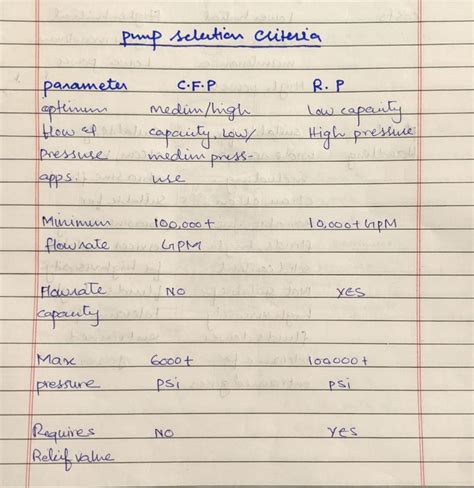 pump selection criteria
parameter C.F.P R.P
optimum medim/high low capacity
flow of capacity, low/ High pressure
pressuse medim press-
apps. use
Minimum 100,000+ 10,000+ GPM
flowrate GPM
Flowrate NO YES
capacity
Max 6000+ 100000+
pressure psi psi
Requires NO Yes
Releif value